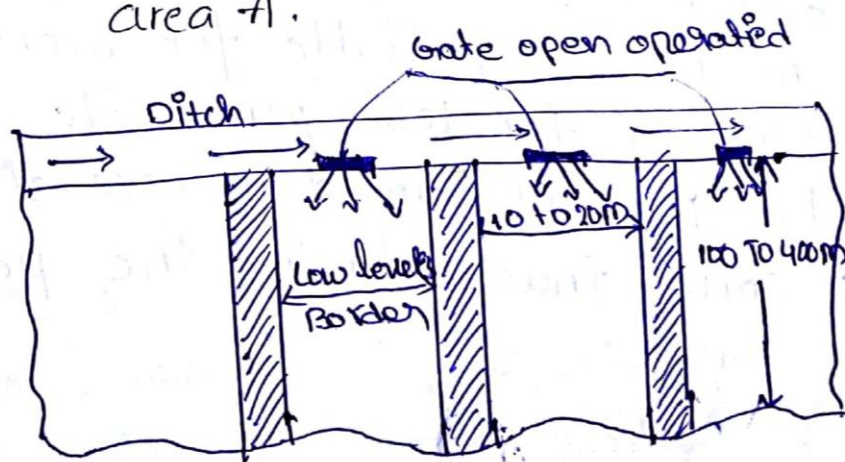 area A.
Gate open operated
Ditch
10 to 20m
Low level
Border
100 TO 400m